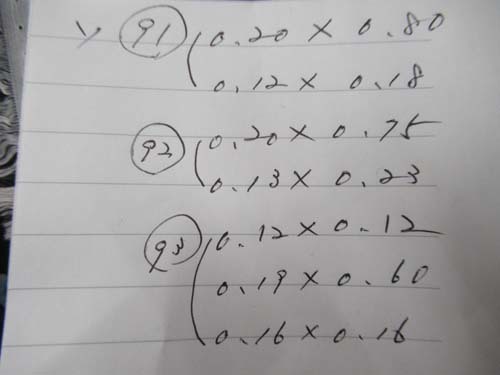 91 0.20 × 0.80
0.12 × 0.18
92 0.20 × 0.75
0.13 × 0.23
93 0.12 × 0.12
0.19 × 0.60
0.16 × 0.16